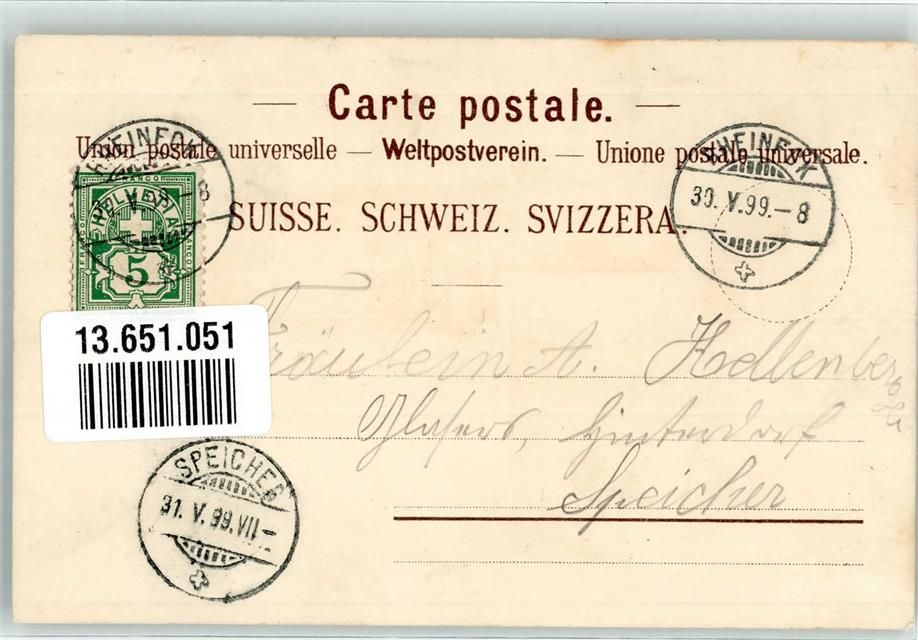 — Carte postale. —
Union postale universelle — Weltpostverein. — Unione postale universale.
SUISSE. SCHWEIZ. SVIZZERA.
RHEINECK
V 8
FRANCO
HELVETIA
FRANCO
FRANCO
5
RHEINECK
30. V. 99. – 8
13.651.051
Fräulein A. Hellenberg
Glasers, Hinterdorf
Speicher
SPEICHER
31. V. 99. VII –